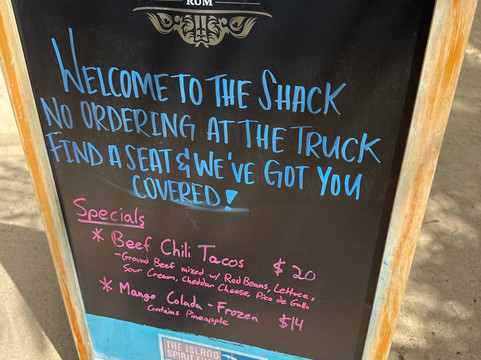 RUM
WELCOME TO THE SHACK
NO ORDERING AT THE TRUCK
FIND A SEAT & WE'VE GOT YOU
COVERED!
Specials
* Beef Chili Tacos $20
- Ground Beef mixed w/ Red Beans, Lettuce,
Sour Cream, Cheddar Cheese, Pico de Gallo
* Mango Colada - Frozen $14
Contains Pineapple
THE ISLAND